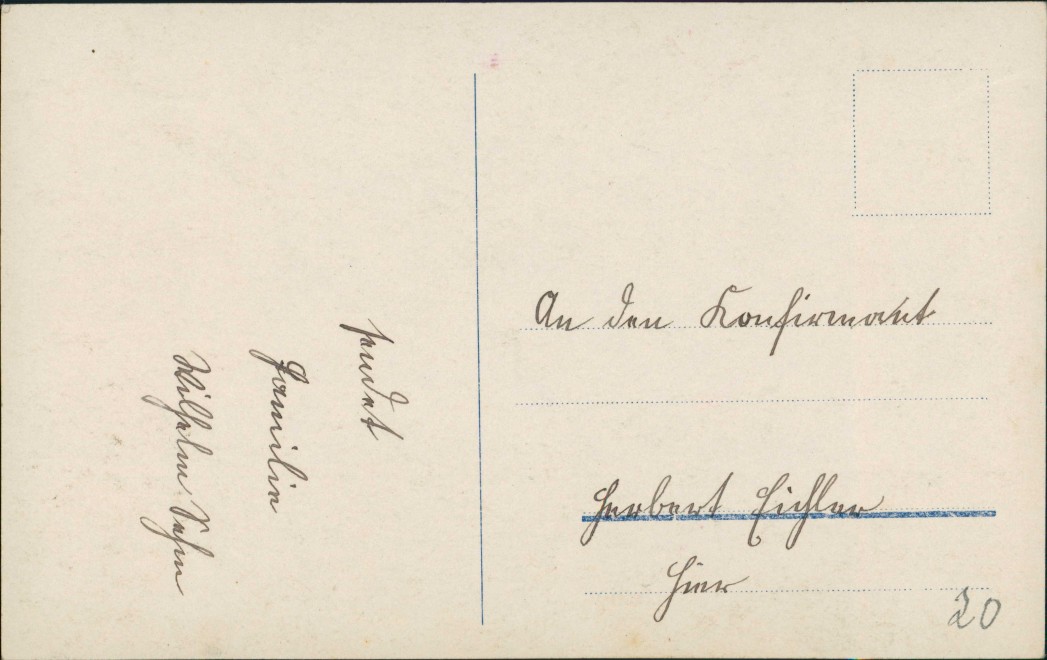 sendet
Familie
Wilhelm
An den Konfirmant
Herbert Eichler
Hier
20